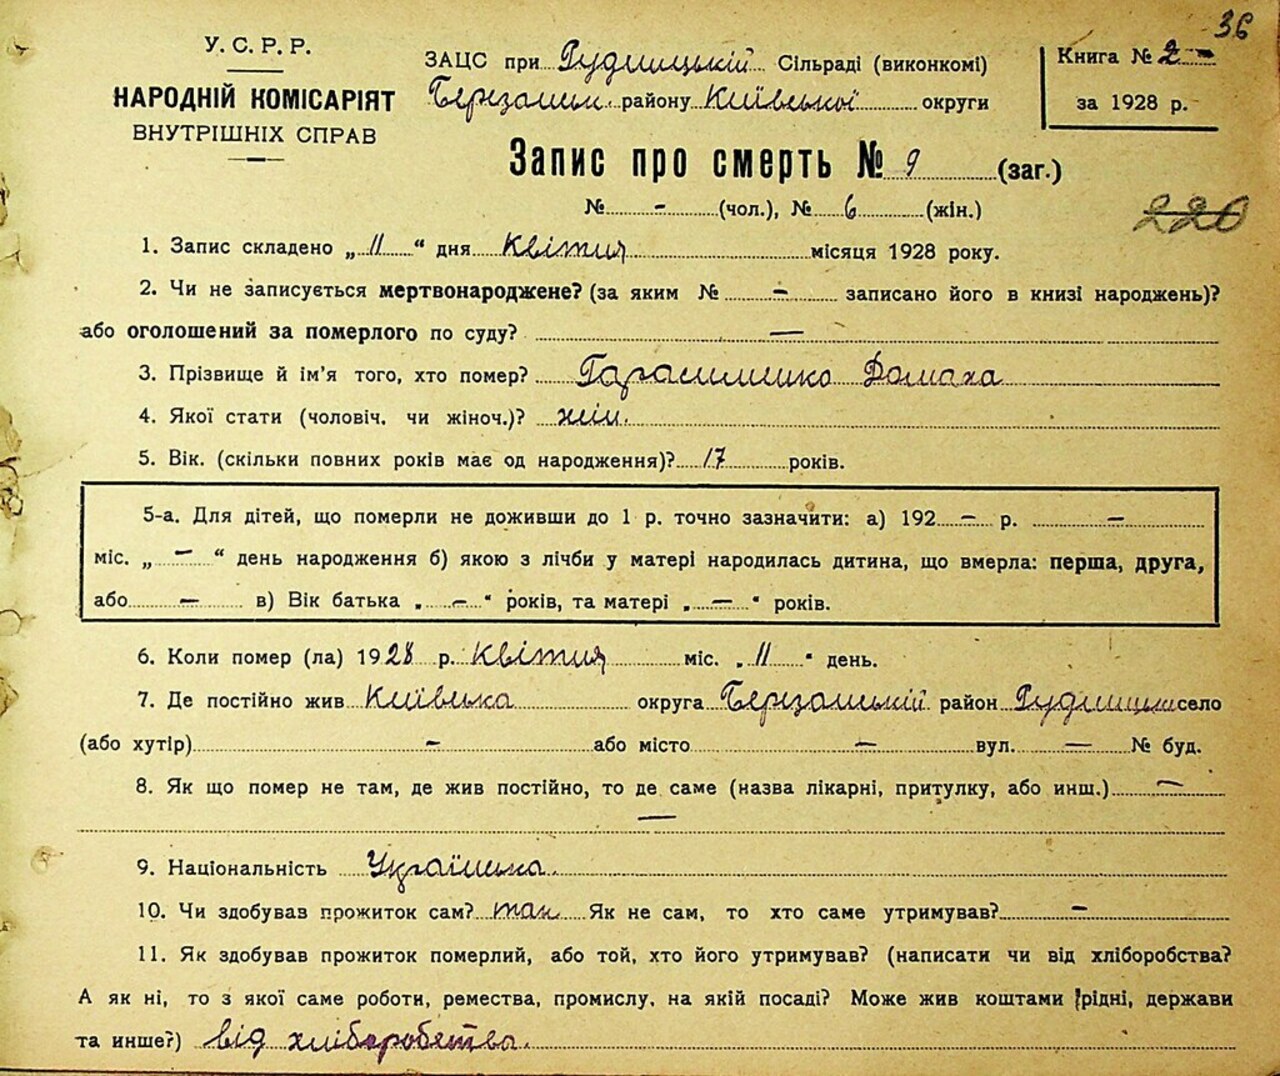 36
У. С. Р. Р.
НАРОДНІЙ КОМІСАРІЯТ
ВНУТРІШНІХ СПРАВ
ЗАЦС при Рудницькій Сільраді (виконкомі)
Березанськ. району Київської округи
Книга № 2 -
за 1928 р.
Запис про смерть № 9 (заг.)
№ - (чол.), № 6 (жін.)
220
1. Запис складено „11“ дня Квітня місяця 1928 року.
2. Чи не записується мертвонароджене? (за яким № - записано його в книзі народжень)?
або оголошений за померлого по суду? —
3. Прізвище й ім'я того, хто помер? Гарасименко Домаха
4. Якої стати (чоловіч. чи жіноч.)? жін.
5. Вік. (скільки повних років має од народження)? 17 років.
5-а. Для дітей, що померли не доживши до 1 р. точно зазначити: а) 192 — р. —
міс. „ — “ день народження б) якою з лічби у матері народилась дитина, що вмерла: перша, друга,
або — в) Вік батька „ — “ років, та матері „ — “ років.
6. Коли помер (ла) 1928 р. Квітня міс. „ 11 “ день.
7. Де постійно жив Київська округа Березанський район Рудницьке село
(або хутір) - або місто — вул. — № буд.
8. Як що помер не там, де жив постійно, то де саме (назва лікарні, притулку, або инш.) —
—
9. Національність Українка.
10. Чи здобував прожиток сам? так Як не сам, то хто саме утримував? -
11. Як здобував прожиток померлий, або той, хто його утримував? (написати чи від хліборобства?
А як ні, то з якої саме роботи, ремества, промислу, на якій посаді? Може жив коштами рідні, держави
та инше?) від хліборобства.